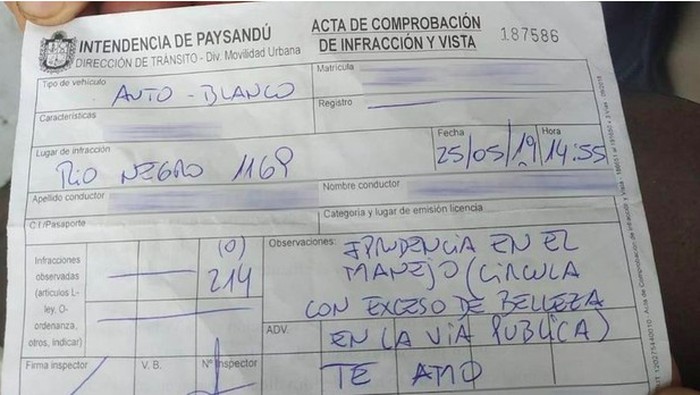 INTENDENCIA DE PAYSANDÚ
DIRECCIÓN DE TRÁNSITO - Div. Movilidad Urbana
ACTA DE COMPROBACIÓN
DE INFRACCIÓN Y VISTA
187586
Tipo de vehículo
AUTO - BLANCO
Matrícula
Características
Registro
Lugar de infracción
RIO NEGRO 1169
Fecha
25/05/19
Hora
14:55
Apellido conductor
Nombre conductor
C.I/Pasaporte
Categoria y lugar de emisión licencia
Infracciones
observadas
(artículos L-
ley, O-
ordenanza,
otros, indicar)
(O)
214
Observaciones:
IPRUDENCIA EN EL
MANEJO (CIRCULA
CON EXCESO DE BELLEZA
ADV.
EN LA VIA PUBLICA)
TE AMO
Firma inspector
V. B.
Nº Inspector